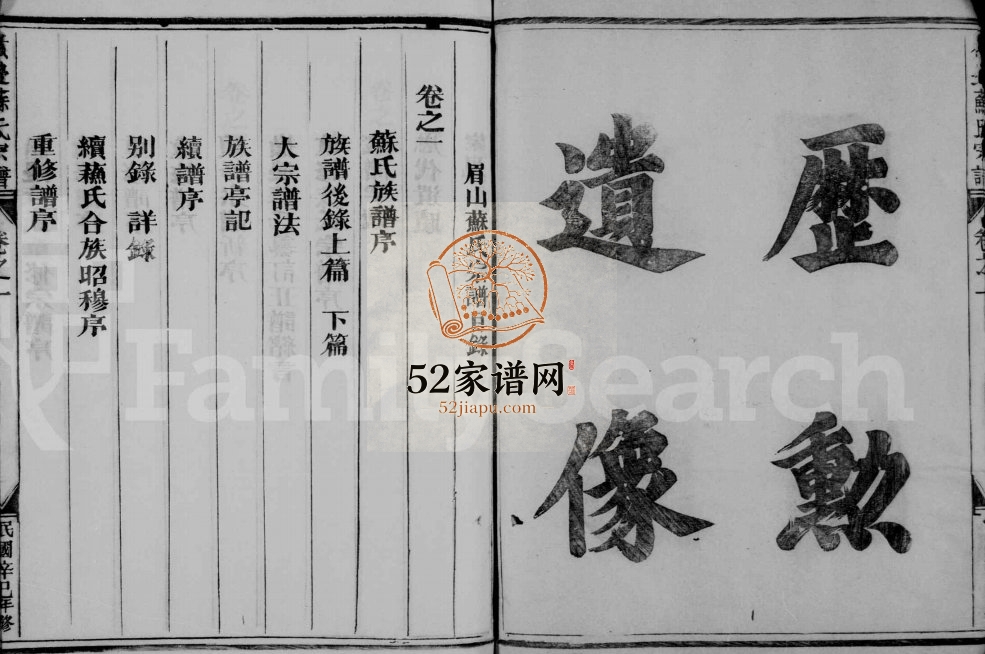 歷勳
遺像
眉山蘇氏宗譜目錄
卷之一
蘇氏族譜序
族譜後錄上篇 下篇
大宗譜法
族譜亭記
續譜序
別錄 詳錄
續蘓氏合族昭穆序
重修譜序
卷之一
民國辛巳年修
52家谱网
52jiapu.com
FamilySearch